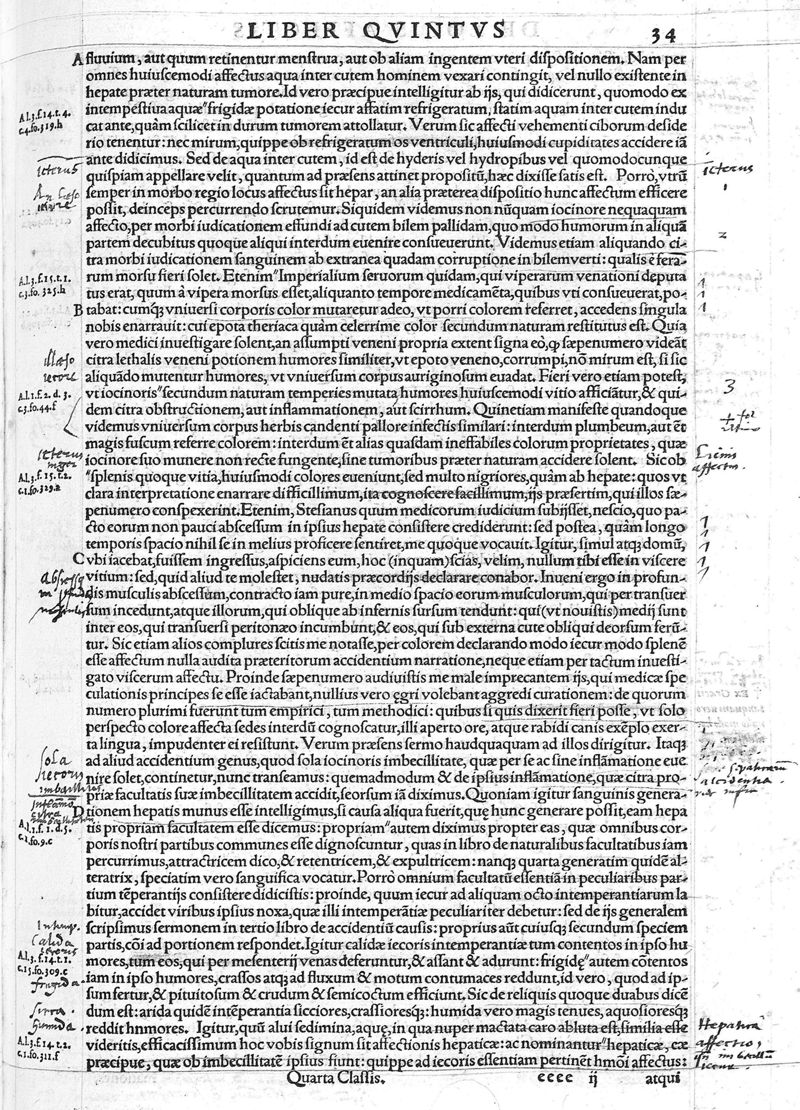 LIBER QVINTVS
34
A fluuium, aut quum retinentur menstrua, aut ob aliam ingentem vteri dispositionem. Nam per
omnes huiuscemodi affectus aqua inter cutem hominem vexari contingit, vel nullo existente in
hepate præter naturam tumore. Id vero præcipue intelligitur ab ijs, qui didicerunt, quomodo ex
A.l.3.f.14.t.4.
c.4.fo.319.h
intempestiua aquæ" frigidæ potatione iecur affatim refrigeratum, statim aquam inter cutem indu
cat ante, quàm scilicet in durum tumorem attollatur. Verum sic affecti vehementi ciborum deside
rio tenentur: nec mirum, quippe ob refrigeratum os ventriculi, huiusmodi cupiditates accidere iā
ante didicimus. Sed de aqua inter cutem, id est de hyderis vel hydropibus vel quomodocunque
icterus
quispiam appellare velit, quantum ad præsens attinet propositū, hæc dixisse satis est. Porrò, vtrū
icterus
semper in morbo regio locus affectus sit hepar, an alia præterea dispositio hunc affectum efficere
1
possit, deinceps percurrendo scrutemur. Siquidem videmus non nūquam iocinore nequaquam
affecto, per morbi iudicationem effundi ad cutem bilem pallidam, quo modo humorum in aliquā
partem decubitus quoque aliqui interdum euenire consueuerunt. Videmus etiam aliquando ci-
2
tra morbi iudicationem sanguinem ab extranea quadam corruptione in bilem verti: qualis ē fera-
A.l.3.f.15.t.1.
c.3.fo.325.h
rum morsu fieri solet. Etenim" Imperialium seruorum quidam, qui viperarum venationi deputa
tus erat, quum à vipera morsus esset, aliquanto tempore medicamēta, quibus vti consueuerat, po-
B tabat: cumq́ vniuersi corporis color mutaretur adeo, vt porri colorem referret, accedens singula
nobis enarrauit: cui epota theriaca quàm celerrime color secundum naturam restitutus est. Quia
vero medici inuestigare solent, an assumpti veneni propria extent signa eò, ꝙ sæpenumero videāt
citra lethalis veneni potionem humores similiter, vt epoto veneno, corrumpi, nō mirum est, si sic
aliquādo mutentur humores, vt vniuersum corpus auriginosum euadat. Fieri vero etiam potest,
A.l.1.f.2.d.3.
c.3.fo.44.f
vt iocinoris" secundum naturam temperies mutata humores huiuscemodi vitio afficiātur, & qui-
3
dem citra obstructionem, aut inflammationem, aut scirrhum. Quinetiam manifeste quandoque
videmus vniuersum corpus herbis candenti pallore infectis similari: interdum plumbeum, aut ēt
magis fuscum referre colorem: interdum ēt alias quasdam ineffabiles colorum proprietates, quæ
icterus
niger
iocinore suo munere non recte fungente, sine tumoribus præter naturam accidere solent. Sic ob
Lienis
affectus.
A.l.3.f.15.t.2.
c.1.fo.329.a
"splenis quoque vitia, huiusmodi colores eueniunt, sed multo nigriores, quàm ab hepate: quos vt
clara interpretatione enarrare difficillimum, ita cognoscere facillimum, ijs præsertim, qui illos sæ-
penumero conspexerint. Etenim, Stesianus quum medicorum iudicium subijsset, nescio, quo pa-
cto eorum non pauci abscessum in ipsius hepate consistere crediderunt: sed postea, quàm longo
temporis spacio nihil se in melius proficere sentiret, me quoque vocauit. Igitur, simul atq́ domū,
C vbi iacebat, fuissem ingressus, aspiciens eum, hoc (inquam) scias, velim, nullum tibi esse in viscere
vitium: sed, quid aliud te molestet, nudatis præcordijs declarare conabor. Inueni ergo in profun-
dis musculis abscessum, contracto iam pure, in medio spacio eorum musculorum, qui per transuer
sum incedunt, atque illorum, qui oblique ab infernis sursum tendunt: qui (vt nouistis) medij sunt
inter eos, qui transuersi peritonæo incumbunt, & eos, qui sub externa cute obliqui deorsum ferū-
tur. Sic etiam alios complures scitis me notasse, per colorem declarando modo iecur modo splenē
esse affectum nulla audita præteritorum accidentium narratione, neque etiam per tactum inuesti-
gato viscerum affectu. Proinde sæpenumero audiuistis me male imprecantem ijs, qui medicæ spe
culationis principes se esse iactabant, nullius vero ęgri volebant aggredi curationem: de quorum
numero plurimi fuerunt tum empirici, tum methodici: quibus si quis dixerit fieri posse, vt solo
perspecto colore affecta sedes interdū cognoscatur, illi aperto ore, atque rabidi canis exēplo exer-
ta lingua, impudenter ei resistunt. Verum præsens sermo haudquaquam ad illos dirigitur. Itaq́
sola
ad aliud accidentium genus, quod sola iocinoris imbecillitate, quæ per se ac sine inflāmatione eue
nire solet, continetur, nunc transeamus: quemadmodum & de ipsius inflāmatione, quæ citra pro-
priæ facultatis suæ imbecillitatem accidit, seorsum iā diximus. Quoniam igitur sanguinis genera-
D tionem hepatis munus esse intelligimus, si causa aliqua fuerit, quę hunc generare possit, eam hepa
A.l.1.f.1.d.5.
c.1.fo.9.c
tis propriam facultatem esse dicemus: propriam" autem diximus propter eas, quæ omnibus cor-
poris nostri partibus communes esse dignoscuntur, quas in libro de naturalibus facultatibus iam
percurrimus, attractricem dico, & retentricem, & expultricem: nanq́ quarta generatim quidē al-
teratrix, speciatim vero sanguifica vocatur. Porrò omnium facultatū essentiā in peculiaribus par-
tium tēperantijs consistere didicistis: proinde, quum iecur ad aliquam octo intemperantiarum la
bitur, accidet viribus ipsius noxa, quæ illi intemperātiæ peculiariter debetur: sed de ijs generalem
scripsimus sermonem in tertio libro de accidentiū causis: proprius aūt cuiusq́ secundum speciem
calida
partis, cōi ad portionem respondet. Igitur calidæ iecoris intemperantiæ tum contentos in ipso hu
A.l.3.f.14.t.1.
c.13.fo.309.c
mores, tum eos, qui per mesenterij venas deferuntur, & assant & adurunt: frigidę" autem cōtentos
frigida
iam in ipso humores, crassos atq́ ad fluxum & motum contumaces reddunt, id vero, quod ad ip-
sum fertur, & pituitosum & crudum & semicoctum efficiunt. Sic de reliquis quoque duabus dicē
dum est: arida quidē intēperantia sicciores, crassioresq́: humida vero magis tenues, aquosioresq́
reddit hnmores. Igitur, quū alui sedimina, aquę, in qua nuper mactata caro abluta est, similia esse
A.l.3.f.14.t.2.
c.1.fo.311.f
videritis, efficacissimum hoc vobis signum sit affectionis hepaticæ: ac nominantur" hepaticæ, eæ
præcipue, quæ ob imbecillitatē ipsius fiunt: quippe ad iecoris essentiam pertinēt hmōi affectus:
Quarta Classis.
eeee ij
atqui